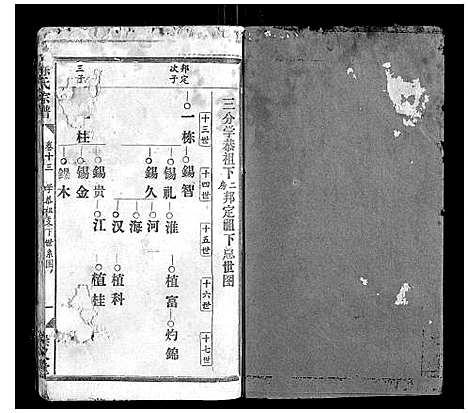 三分学恭祖下二房邦定祖下总世图
十三世
十四世
十五世
十六世
十七世
邦定
次子
一栋
锡智
锡礼
淮
植富
灼锦
锡久
河
海
汉
植科
三子
一柱
锡贵
江
植桂
锡金
锡木
氏宗谱
卷十三
学恭祖支下世系图